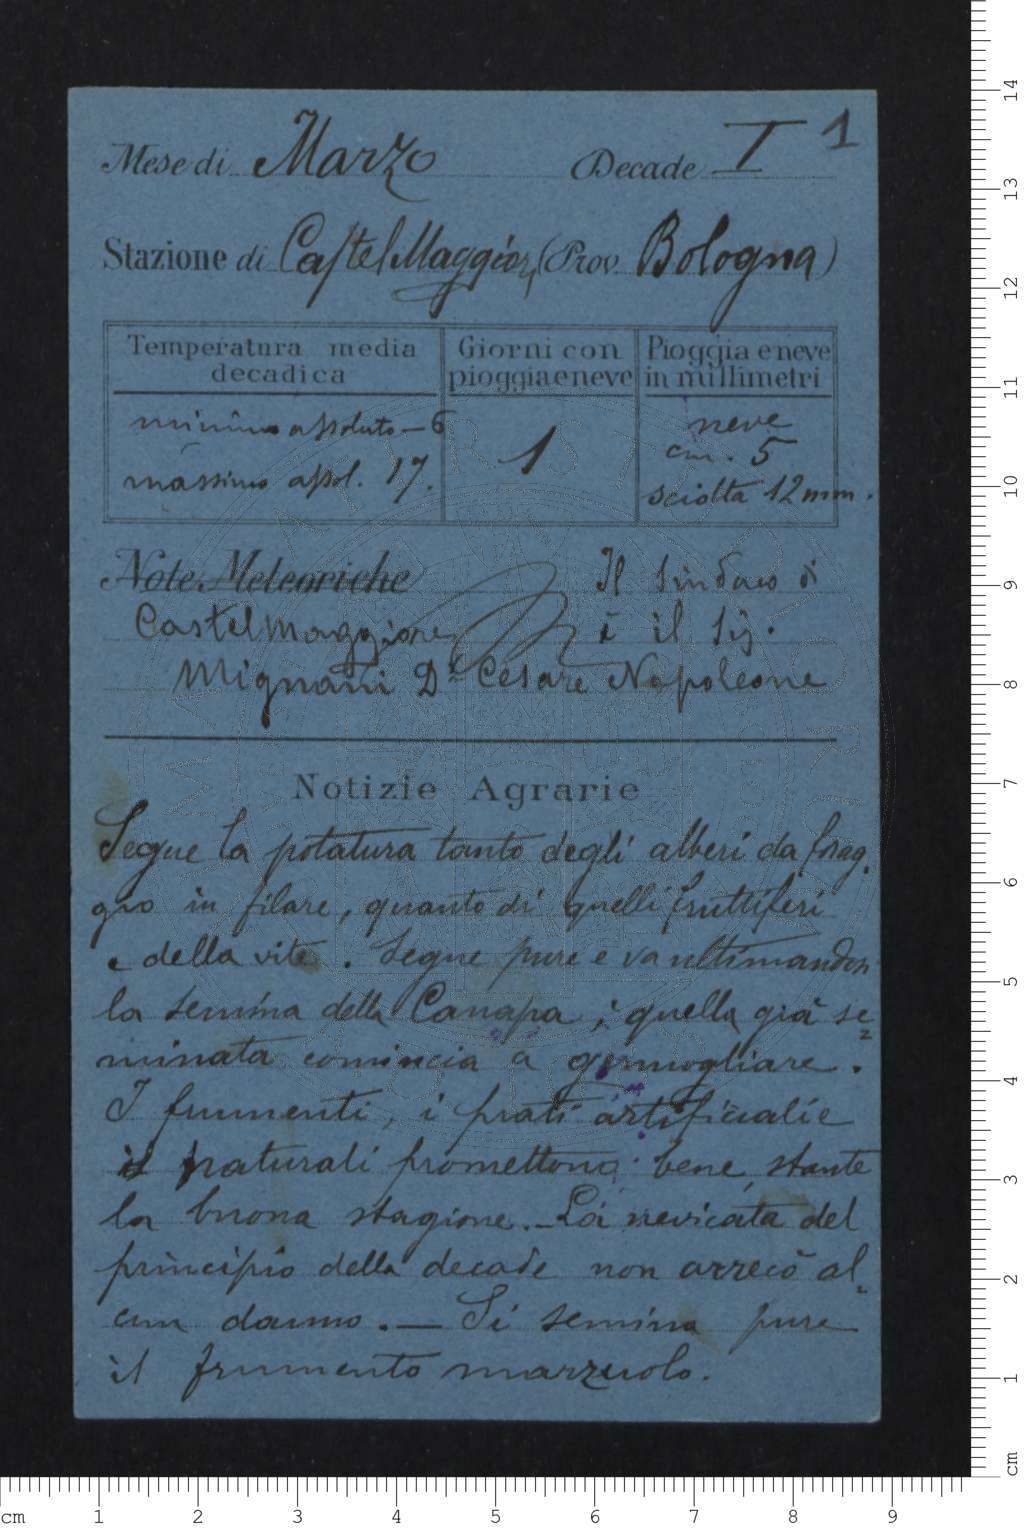 Mese di Marzo Decade I 1
Stazione di Castel Maggiore (Prov. Bologna)
Temperatura media decadica
Giorni con pioggia e neve
Pioggia e neve in millimetri
minimo assoluto – 6
massimo assol. 17.
1
neve
cm. 5
sciolta 12 mm.
Note Meteoriche Il Sindaco di
Castelmaggiore è il Sig.
Mignani Dr Cesare Napoleone
Notizie Agrarie
Segue la potatura tanto degli alberi da forag.
gio in filare, quanto di quelli fruttiferi
e della vite. Segue pure e va ultimandosi
la semina della Canapa, e quella già se=
minata comincia a germogliare.
I frumenti, i prati artificiali e
i naturali promettono bene, stante
la buona stagione. – La nevicata del
principio della decade non arrecò al-
cun danno. — Si semina pure
il frumento marzuolo.